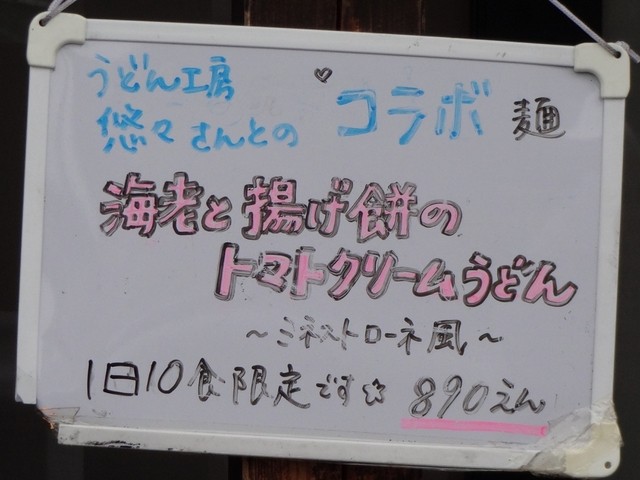 うどん工房
悠々さんとの ♡ コラボ 麺
海老と揚げ餅の
トマトクリームうどん
～ミネストローネ風～
1日10食限定です☆ 890えん